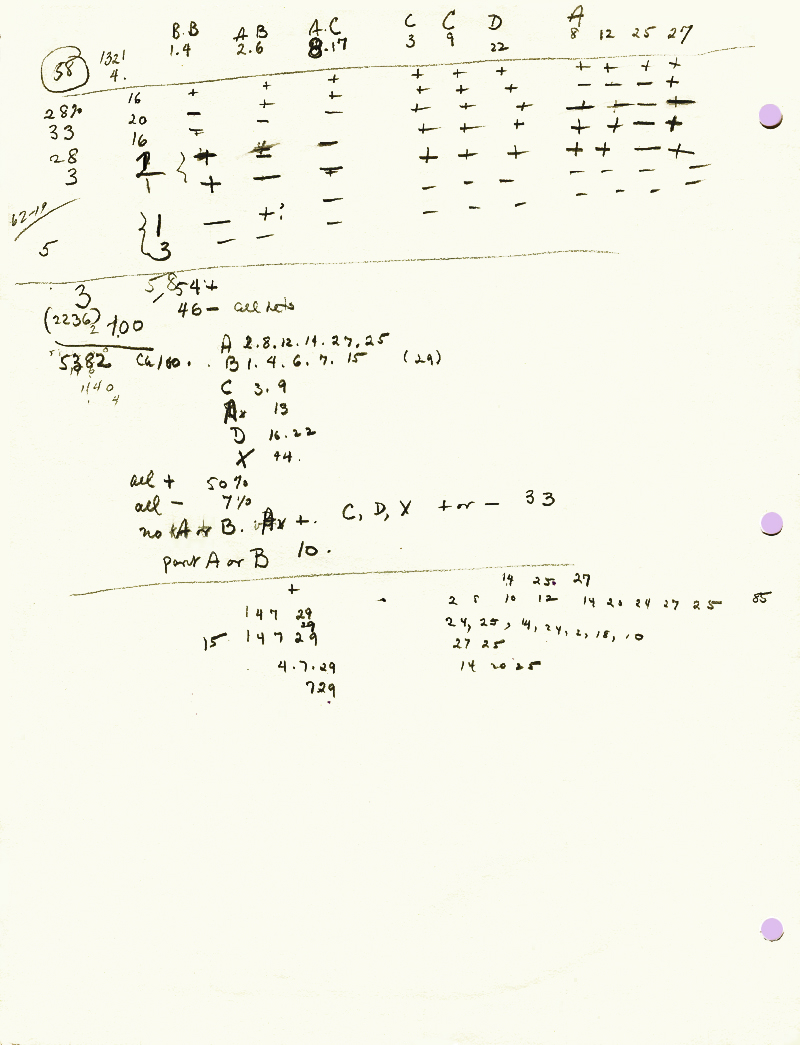 B.B A B A.C C C D A
58 1321 4. 1.4 2.6 8.17 3 9 22 8 12 25 27
+ + + + + + +
28% 16 + + + + + + - - - +
33 20 - + - + + + + + - +
28 16 + - + + + + + - +
3 1 + + - + + + + + - +
1 + - + - - - - - - -
62-19 1 - +? - - - - - - - -
5 3 - -
3 5,854+
46- all nots
(2236) 100
5382 Ca/100. A 2.8.12.14.27.25
B 1.4.6.7.15 (29)
440 C 3.9
4 Ax 13
D 16.22
X 44.
all + 50%
all - 7%
no A or B. Ax +. C, D, X + or - 33
part A or B 10.
+ 14 25 27
- 2 8 10 12 14 20 24 27 25 85
147 29
29 24, 25, 14, 24, 2, 18, 10
15 147 29 27 25
4.7.29 14 20 25
729